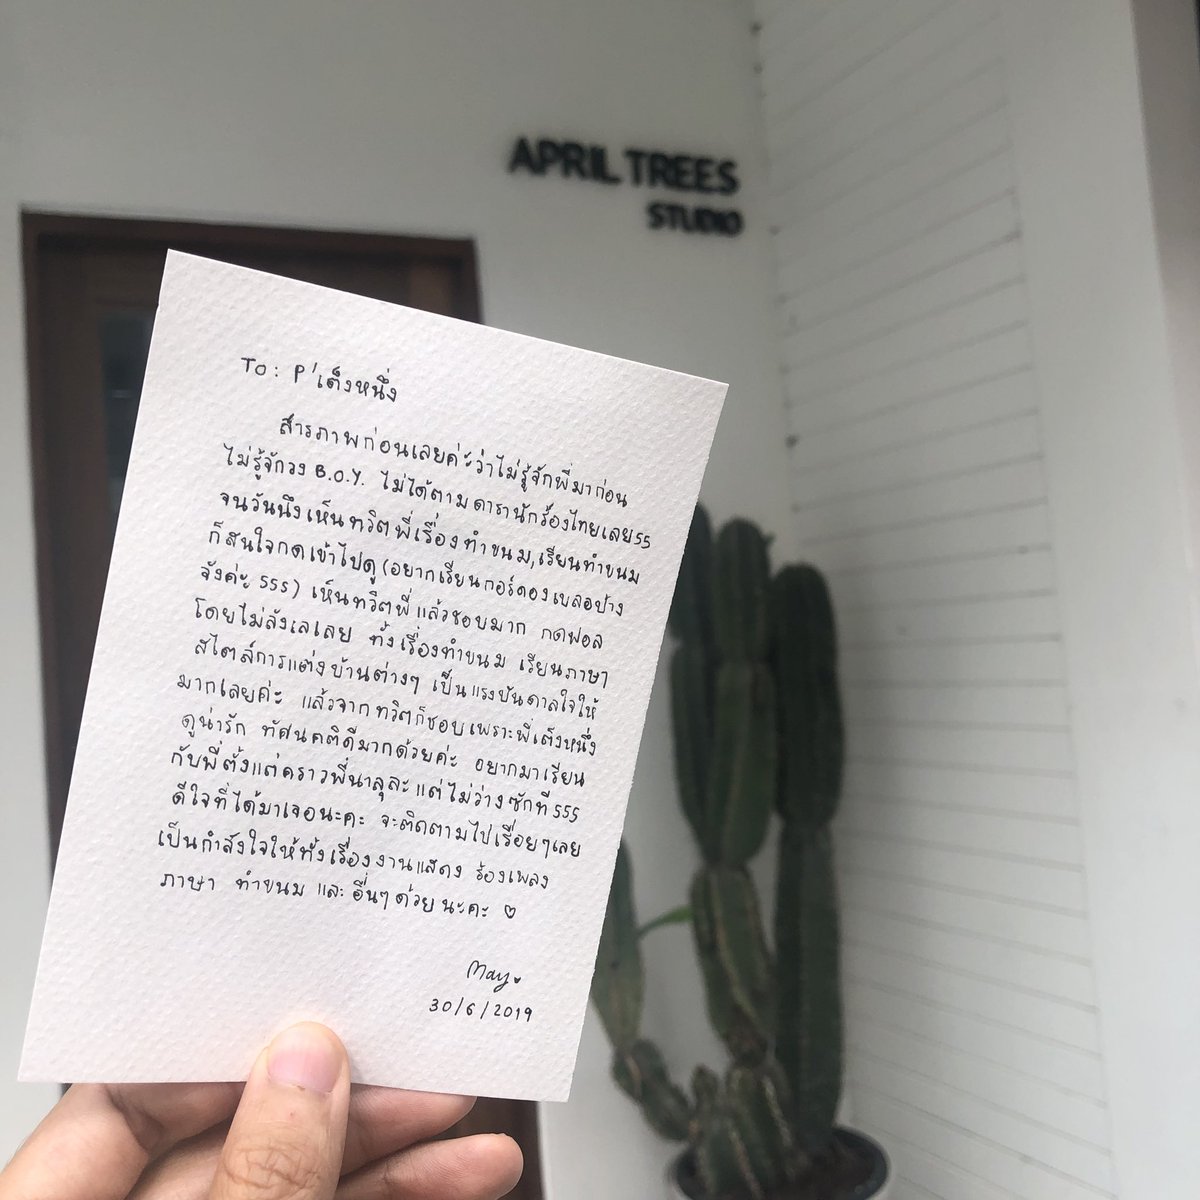 APRIL TREES
STUDIO
To: P'เต็งหนึ่ง
สารภาพก่อนเลยค่ะว่าไม่รู้จักพี่มาก่อน
ไม่รู้จักวง B.O.Y. ไม่ได้ตามดารานักร้องไทยเลย55
จนวันนึงเห็นทวิตพี่เรื่องทำขนม,เรียนทำขนม
ก็สนใจกดเข้าไปดู(อยากเรียนกอร์ดองเบลอบ้าง
จังค่ะ 555) เห็นทวิตพี่แล้วชอบมาก กดฟอล
โดยไม่ลังเลเลย ทั้งเรื่องทำขนม เรียนภาษา
สไตล์การแต่งบ้านต่างๆ เป็นแรงบันดาลใจให้
มากเลยค่ะ แล้วจากทวิตก็ชอบเพราะพี่เต็งหนึ่ง
ดูน่ารัก ทัศนคติดีมากด้วยค่ะ อยากมาเรียน
กับพี่ตั้งแต่คราวพี่นาลุละ แต่ไม่ว่างซักที 555
ดีใจที่ได้มาเจอนะคะ จะติดตามไปเรื่อยๆเลย
เป็นกำลังใจให้ทั้งเรื่องงานแสดง ร้องเพลง
ภาษา ทำขนม และอื่นๆด้วยนะคะ ♡
May
30/6/2019